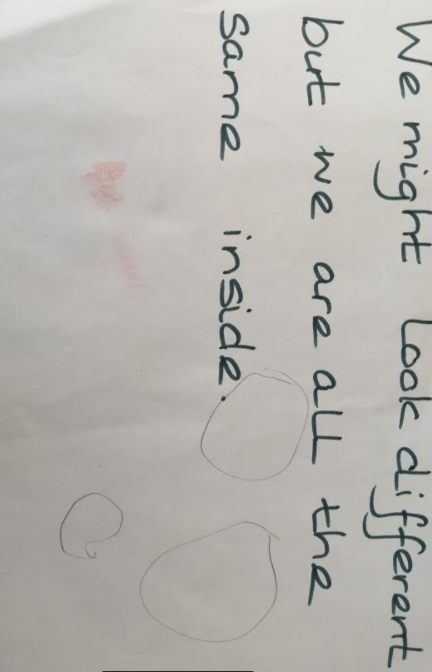 We might Look different
but we are all the
same inside.